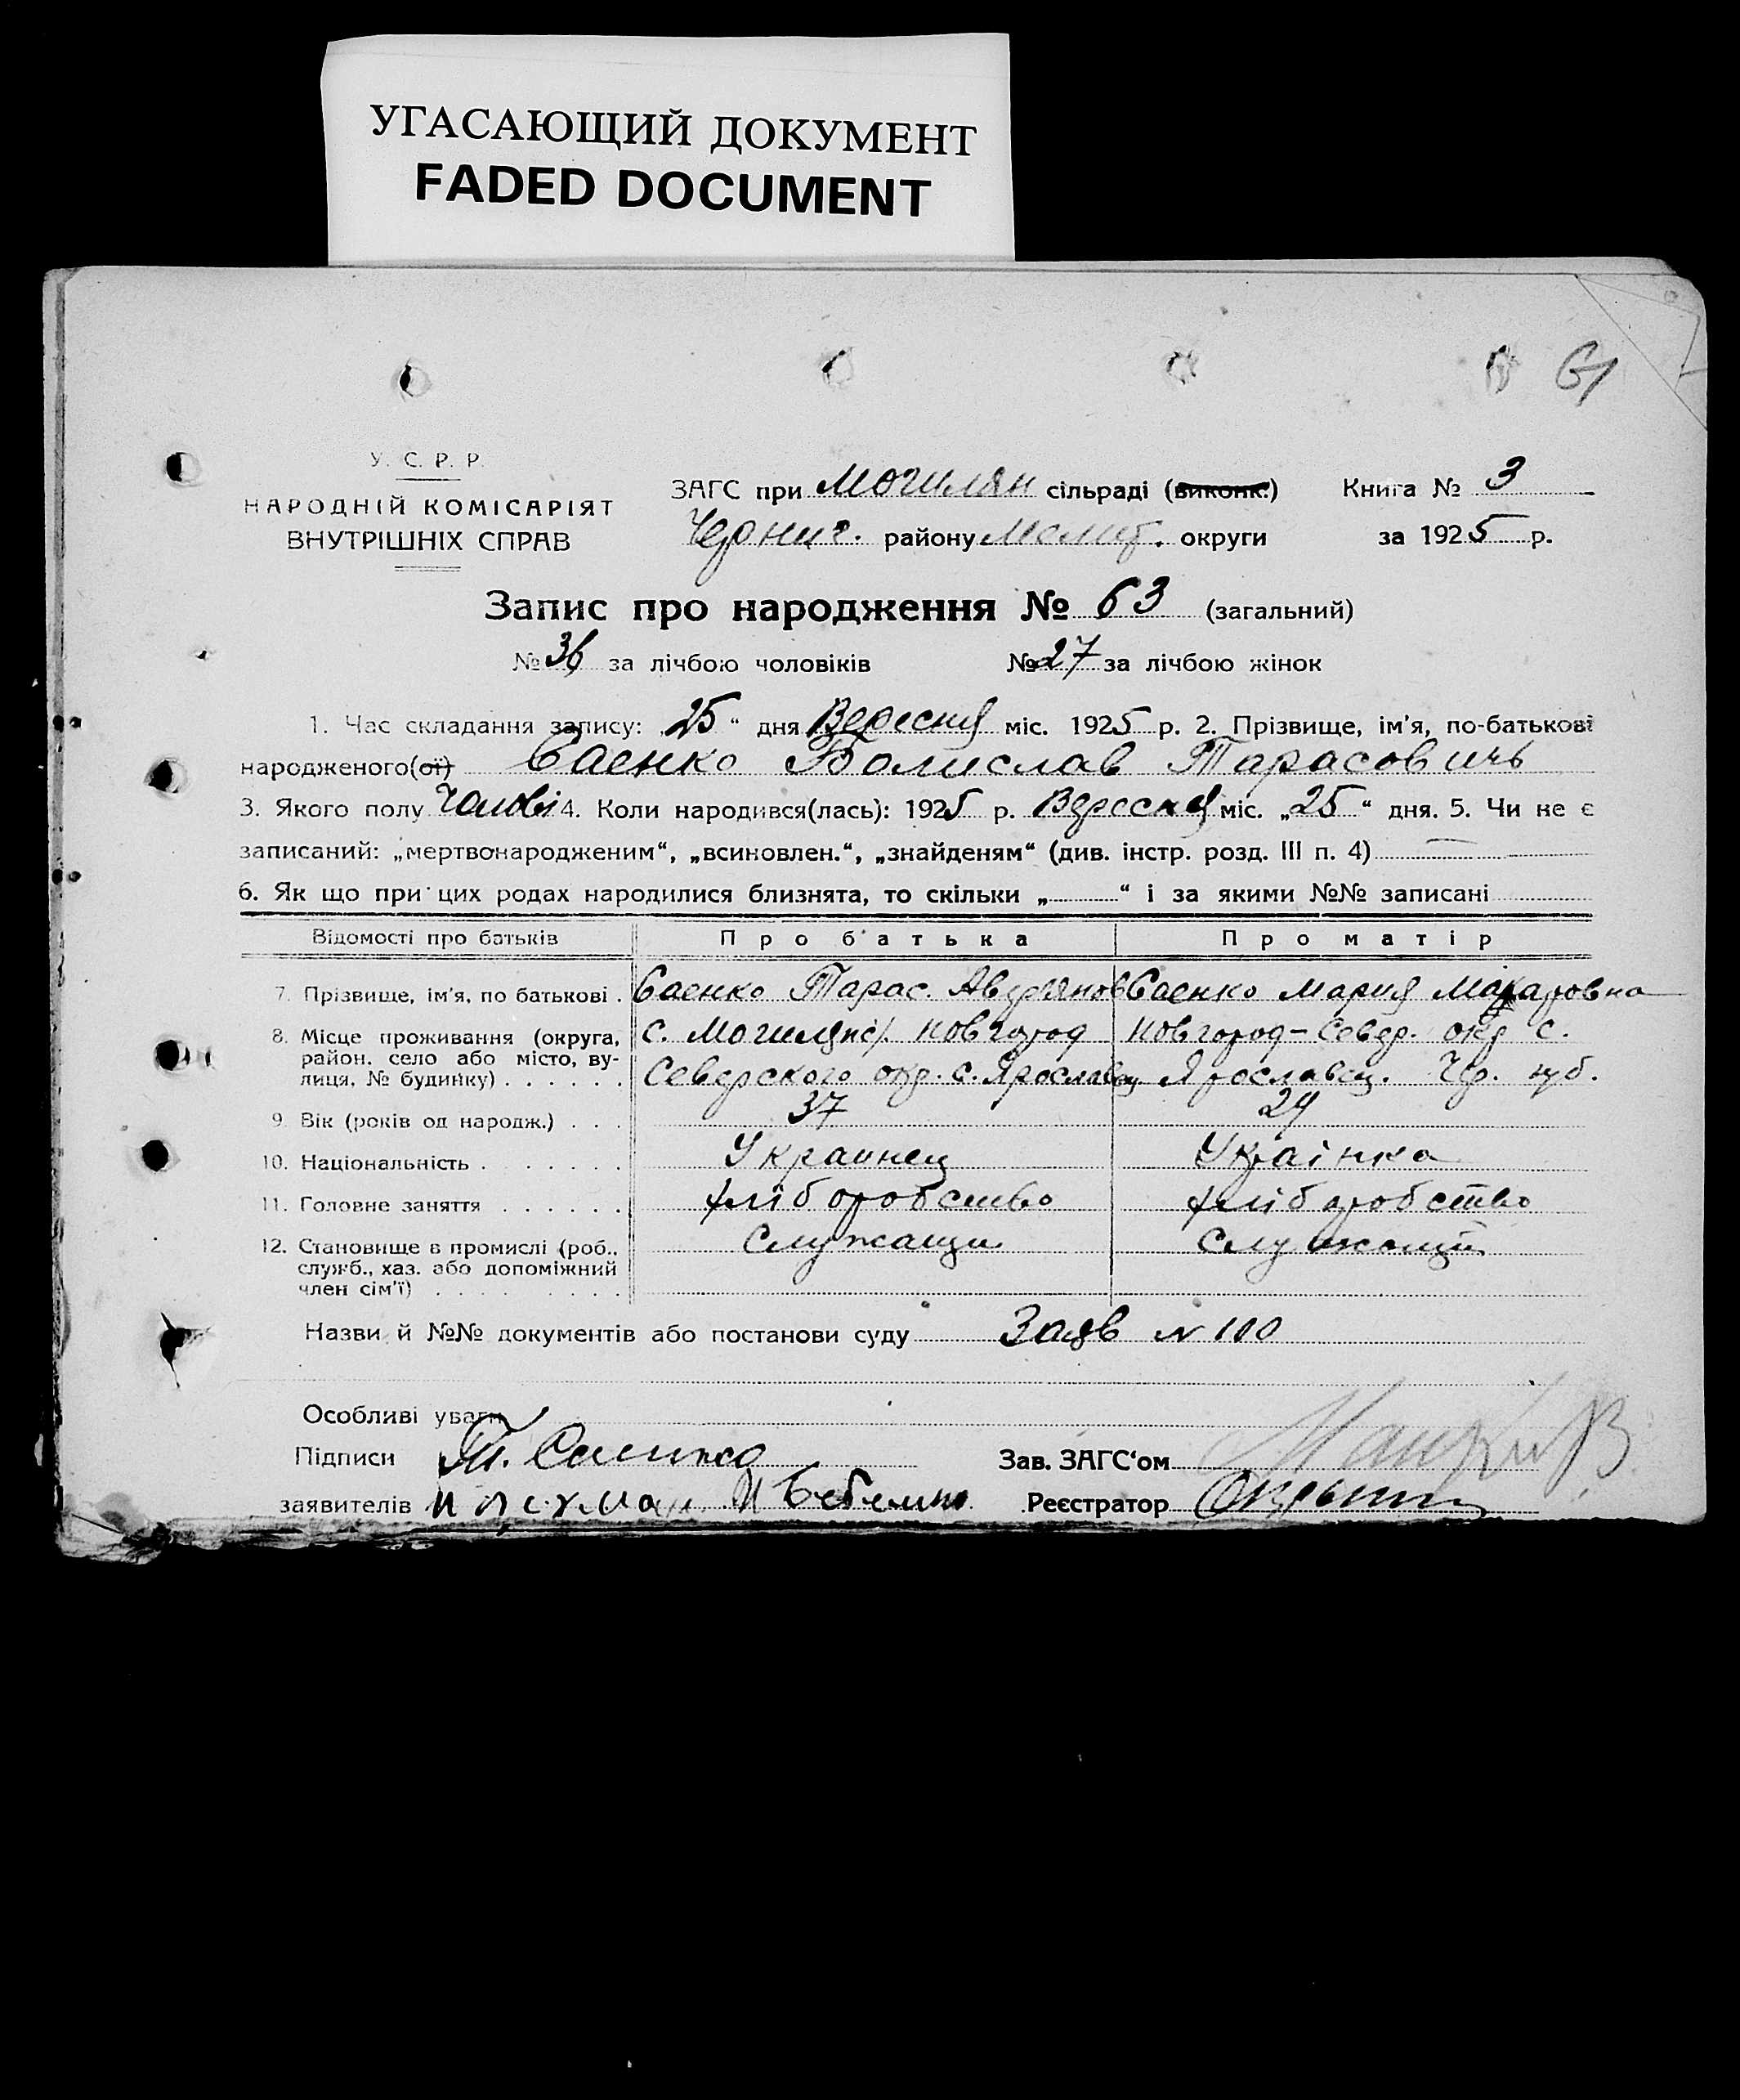 УГАСАЮЩИЙ ДОКУМЕНТ
FADED DOCUMENT
61
У. С. Р. Р.
НАРОДНІЙ КОМІСАРІЯТ
ВНУТРІШНІХ СПРАВ
ЗАГС при Могилян сільраді (виконк.) Книга № 3
Черниг. району Мелит. округи за 1925 р.
Запис про народження № 63 (загальний)
№ 36 за лічбою чоловіків № 27 за лічбою жінок
1. Час складання запису: „25“ дня Вересня міс. 1925 р. 2. Прізвище, ім'я, по-батькові
народженого(ої) Саенко Болислав Тарасовичь
3. Якого полу Чолові 4. Коли народився(лась): 1925 р. Вересня міс. „25“ дня. 5. Чи не є
записаний: „мертвонародженим“, „всиновлен.“, „знайденям“ (див. інстр. розд. III п. 4)
6. Як що при цих родах народилися близнята, то скільки „ “ і за якими №№ записані
Відомості про батьків Про батька Про матір
7. Прізвище, ім'я, по батькові . Саенко Тарас. Саенко Мария Макаровна
8. Місце проживання (округа, район, село або місто, вулиця, № будинку) . . . . . . с. Новгород Северского окр. с. Ярославец Новгород-Север. окр с. Ярославец. Чер. губ.
9. Вік (років од народж.) . . . 37 29
10. Національність . . . . . . Украинец Українка
11. Головне заняття . . . . . . хліборобство хліборобство
12. Становище в промислі (роб., служб., хаз. або допоміжний член сім'ї) . . . . . . . Служащи Служащи
Назви й №№ документів або постанови суду Заяв N 100
Особливі уваги
Підписи Т. Саенко Зав. ЗАГС'ом
заявителів Реєстратор